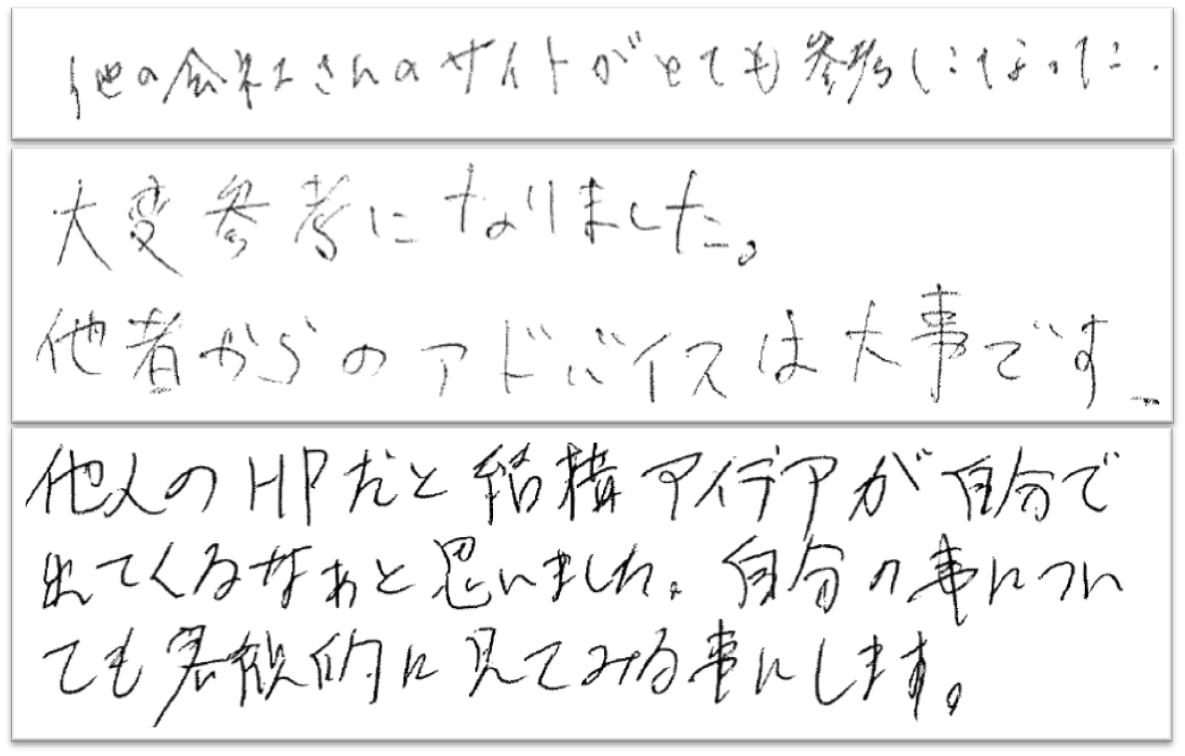 他の会社さんのサイトがとても参考になった.
大変参考になりました。
他者からのアドバイスは大事です。
他人のHPだと結構アイデアが自分で
出てくるなぁと思いました。自分の事につい
ても客観的に見てみる事にします。